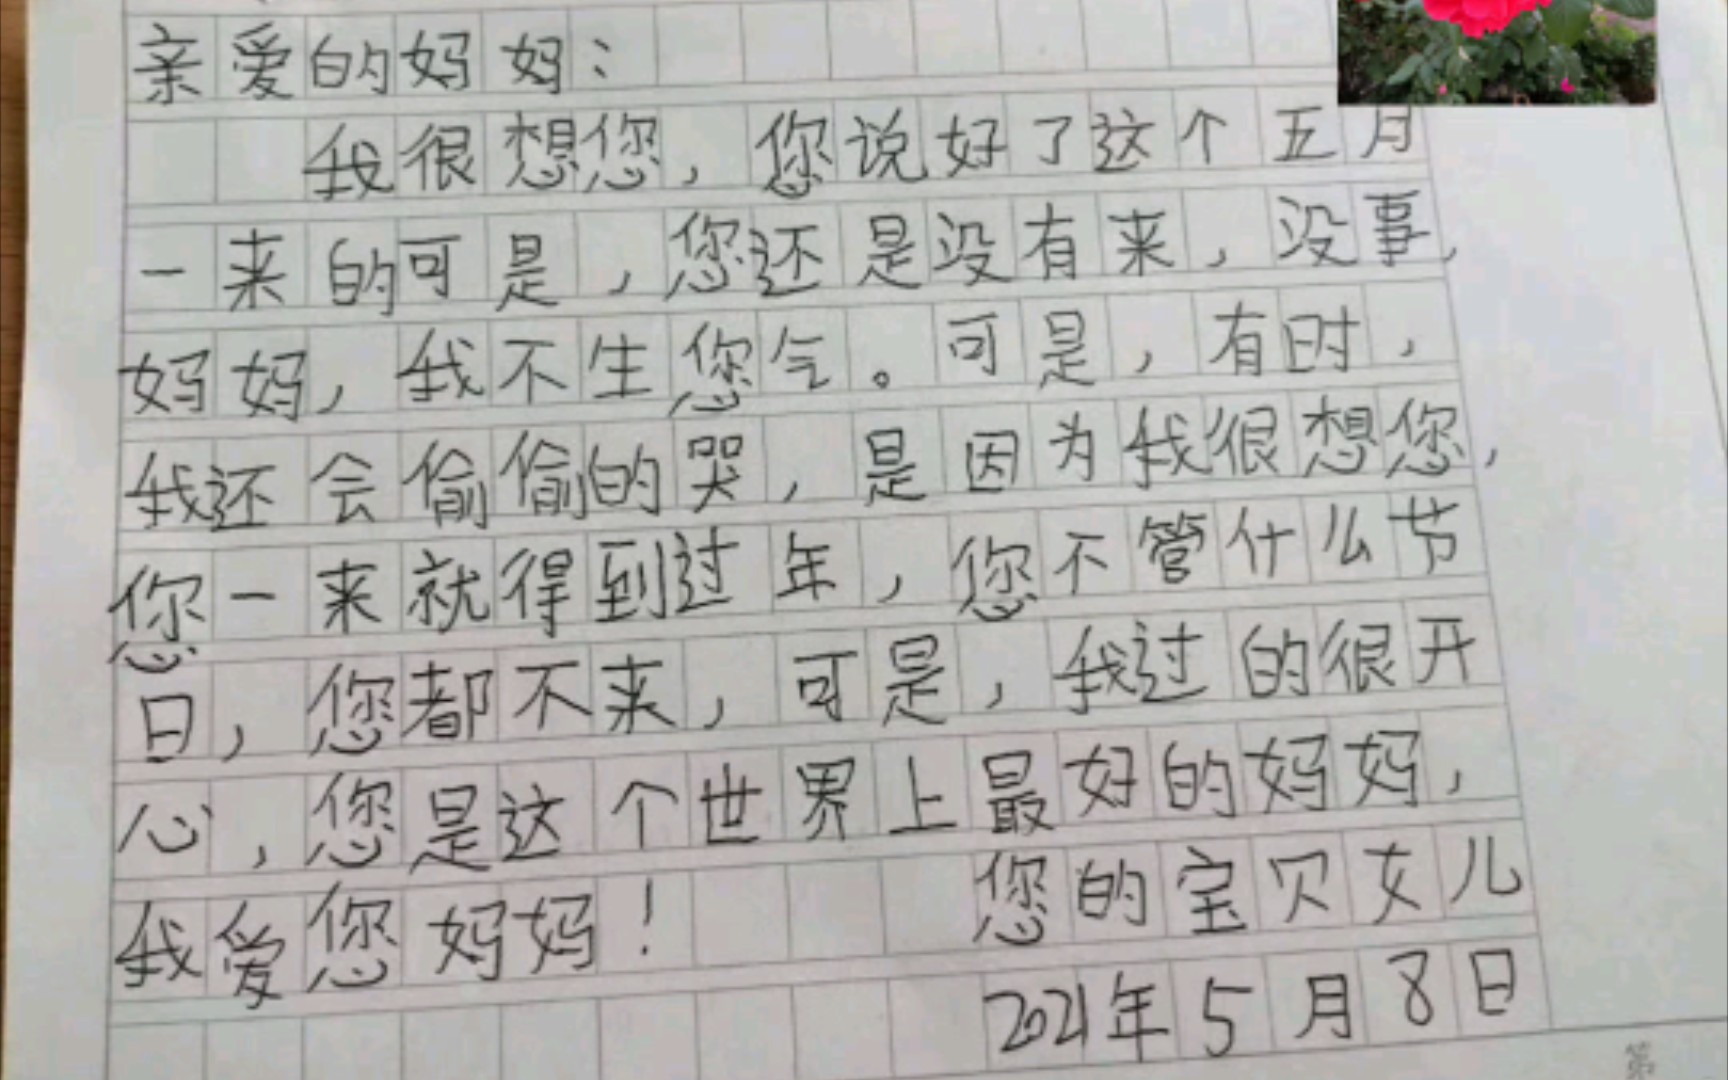 亲爱的妈妈：
我很想您，您说好了这个五月
一来的可是，您还是没有来，没事，
妈妈，我不生您气。可是，有时，
我还会偷偷的哭，是因为我很想您，
您一来就得到过年，您不管什么节
日，您都不来，可是，我过的很开
心，您是这个世界上最好的妈妈，
我爱您妈妈！ 您的宝贝女儿
2021年5月8日
第